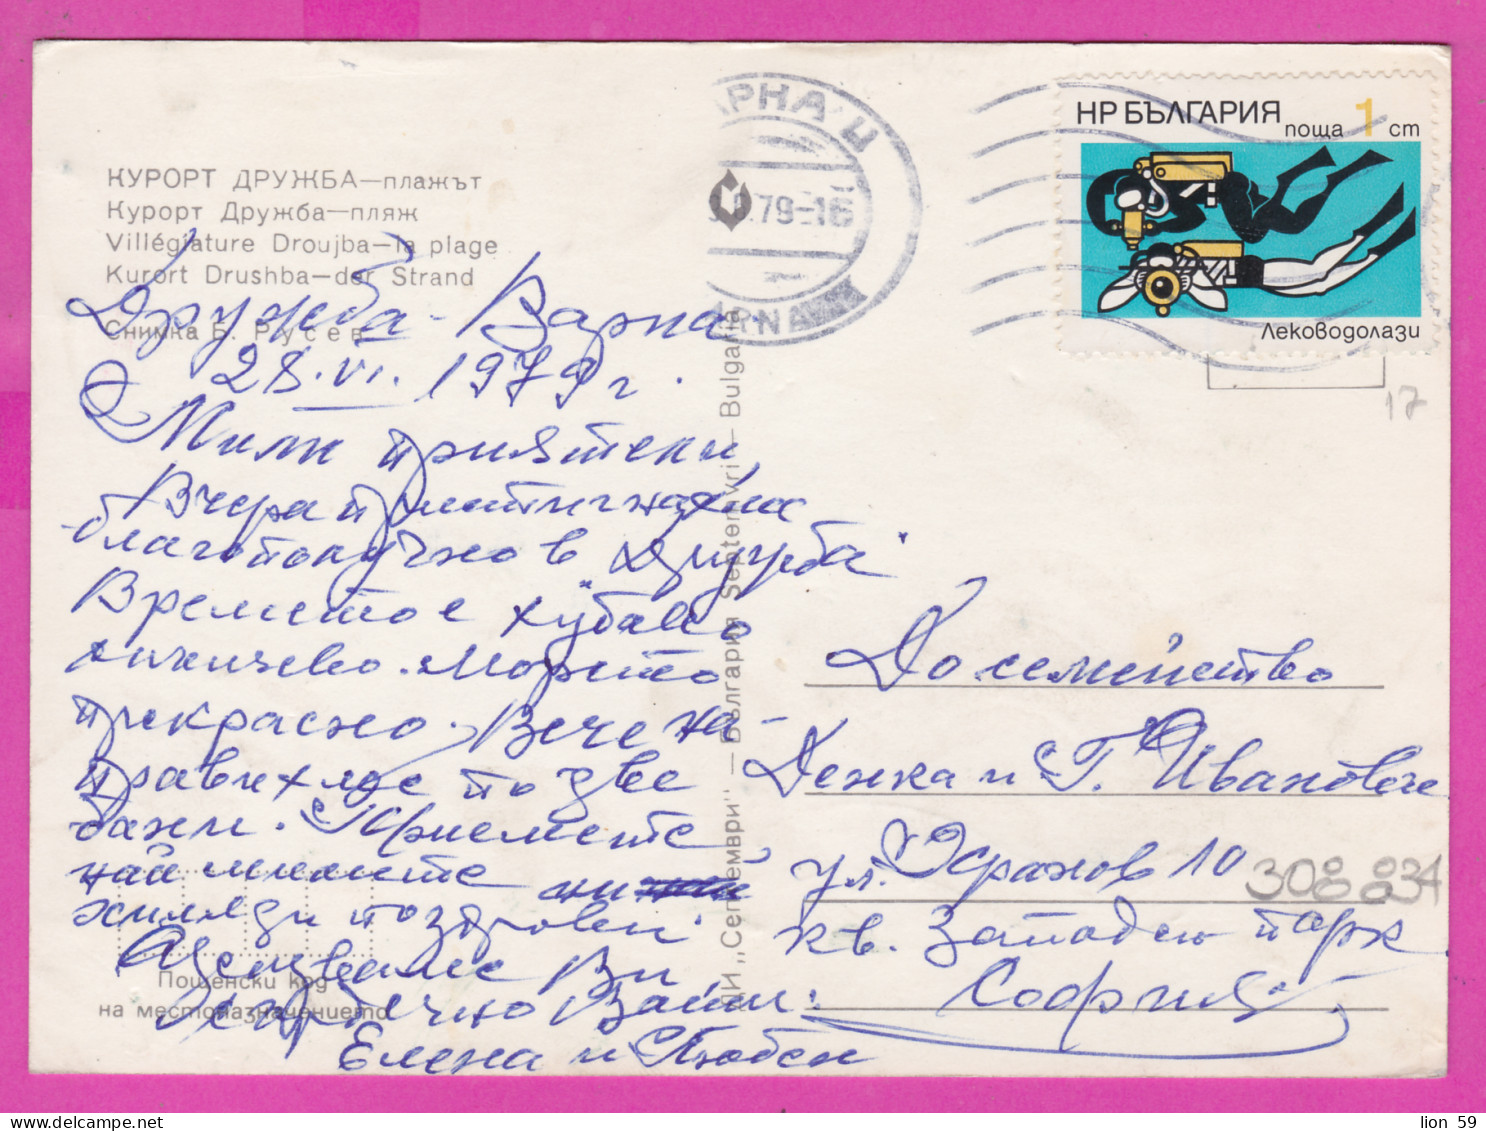 КУРОРТ ДРУЖБА—плажът
Курорт Дружба—пляж
Villégiature Droujba—la plage
Kurort Drushba—der Strand
Снимка Б. Русев
Дружба - Варна
28. VI. 1979 г.
Мили приятели,
Вчера пристигнахме
благополучно в "Дружба"
Времето е хубаво
Морето
прекрасно. Вече на-
правихме по две
бани. Приемете
най милите ни
хиляди поздрави
Целуваме Ви
сърдечно Ваши:
Елена и Любен
Пощенски код
на местоназначението
ДИ „Септември" — България Septemvri — Bulgaria
ВАРНА Ц
79-16
VARNA
НР БЪЛГАРИЯ
поща 1 ст
Леководолази
17
До семейство
Денка и Г. Иванови
ул. 10
308834
кв. Западен парк
София
lion 59